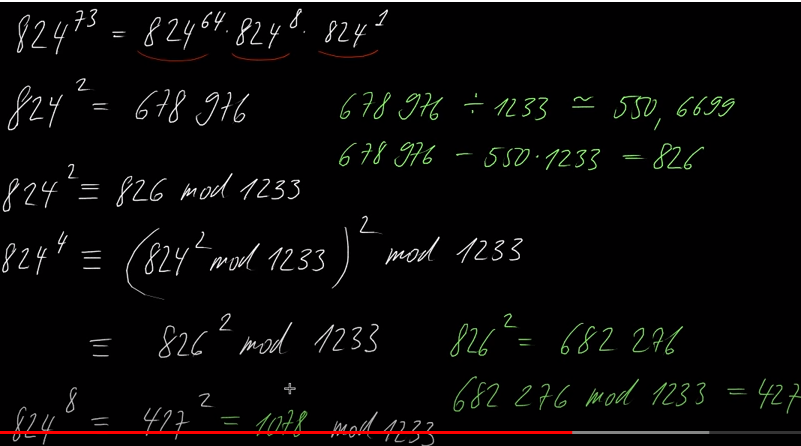 824^73 = 824^64 · 824^8 · 824^1
824^2 = 678 976
678 976 ÷ 1233 ≃ 550, 6699
678 976 − 550·1233 = 826
824^2 ≡ 826 mod 1233
824^4 ≡ (824^2 mod 1233)^2 mod 1233
≡ 826^2 mod 1233
826^2 = 682 276
682 276 mod 1233 = 427
824^8 = 427^2 = 1078 mod 1233